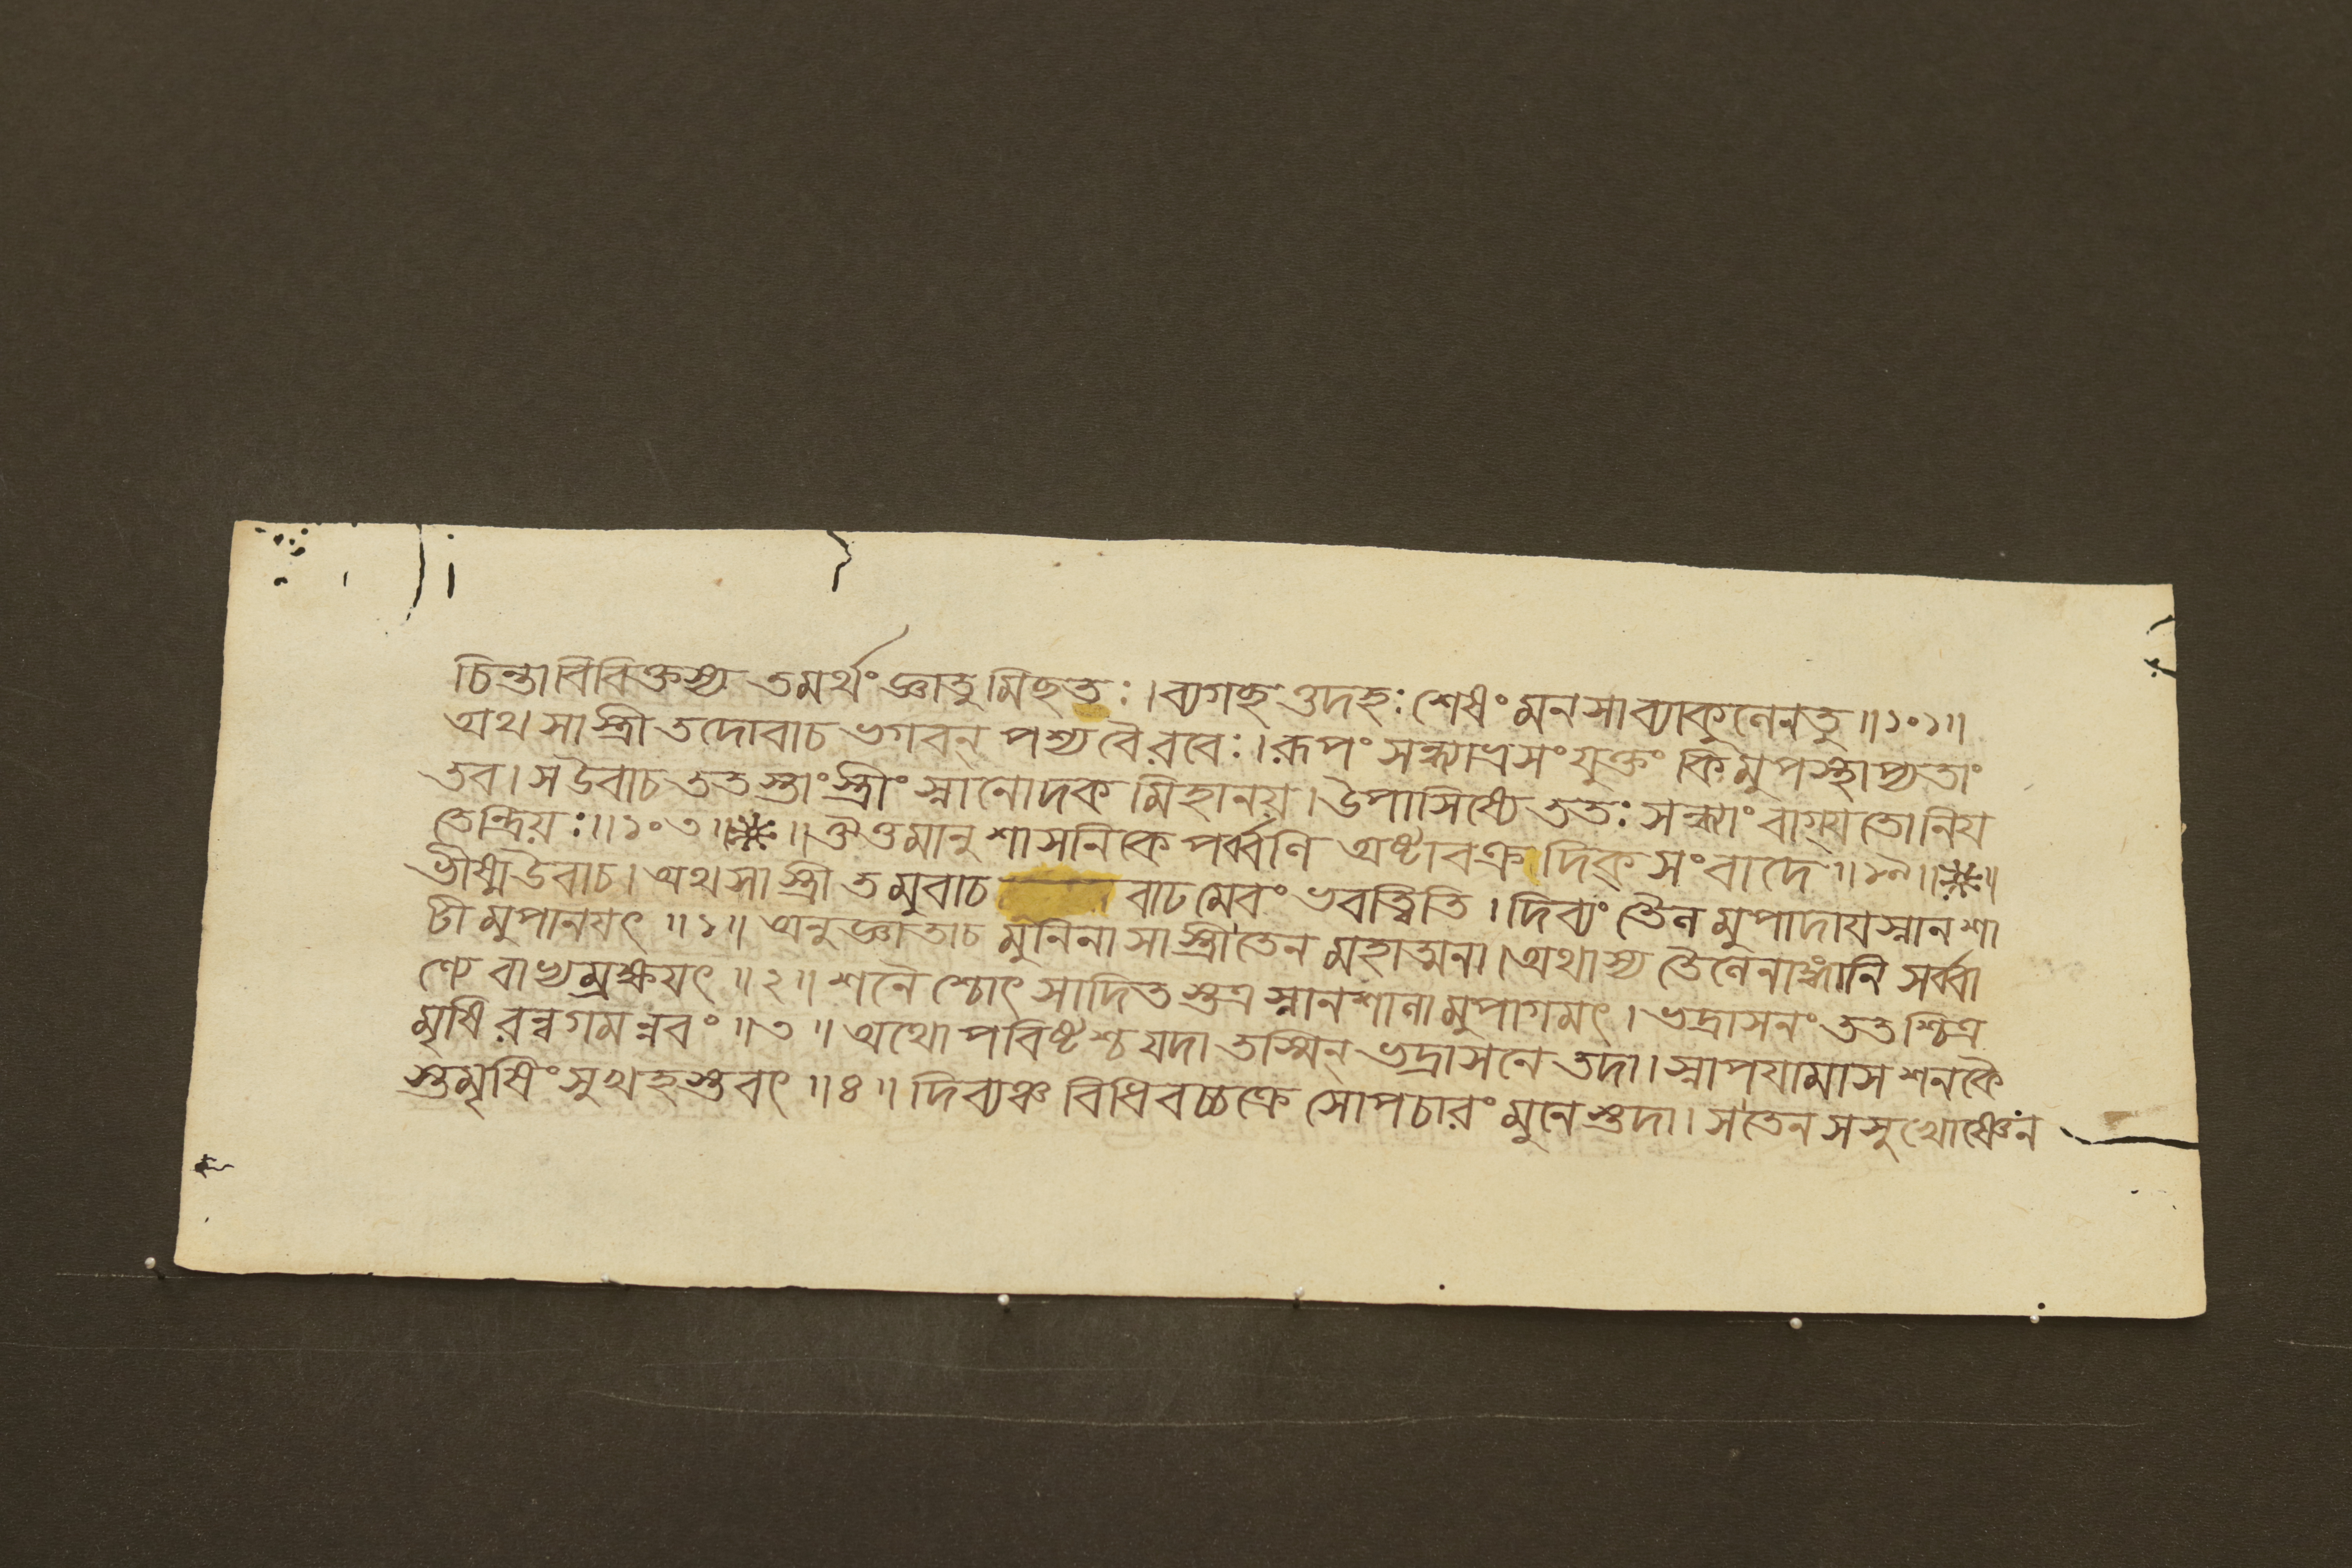 চিন্তাবিবিক্তস্য তমর্থং জ্ঞাতুমিছতঃ।ব্যগছ ওদহঃ শেষং মনসাব্যাকুলেনতু॥১০১॥
অথ সা স্ত্রী তদোবাচ ভগবন্ পশ্য বৈ রবেঃ।রূপং সন্ধ্যাভ্রসংযুক্তং কিমুপস্থাপ্যতাং
তব। স উবাচ ততস্তাং স্ত্রীং স্নানোদক মিহানয়। উপাসিষ্যে ততঃ সন্ধ্যাং বাগ্যতোনিয
তেন্দ্রিয়ঃ॥১০৩॥ ॥ঔওমানুশাসনিকে পর্ব্বণি অষ্টাবক্রদিক্ সংবাদে॥১৯॥
ভীষ্মউবাচ। অথ সা স্ত্রী তমুবাচ বাঢমেবং ভবত্বিতি। দিব্যং তৈল মুপাদায় স্নানশা
টীমুপানযৎ॥১॥ অনুজ্ঞাতাচ মুনিনা সা স্ত্রী তেন মহাত্মনা।অথাস্য তৈলেনাঙ্গানি সর্ব্বা
ণ্যেবাভ্যম্রক্ষযৎ॥২॥ শনৈশ্চোৎসাদিতস্তত্র স্নানশালামুপাগমৎ। ভদ্রাসনং ততশ্চিত্র
মৃষিরন্বগমন্নবং॥৩॥ অথোপবিষ্টশ্চ যদা তস্মিন্ ভদ্রাসনে তদা।স্নাপযামাস শনকৈ
স্তমৃষিং সুখহস্তবৎ॥৪॥ দিব্যঞ্চ বিধিবচ্চক্রে সোপচারং মুনেস্তদা। স তেন সসুখোষ্ণেন